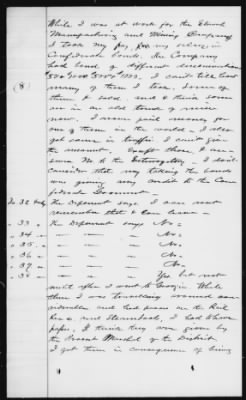 While I was at work for the Etowah
Manufacturing and Mining Company
I took my pay for my salary in
Confederate bonds, the Company
had bonds of different denominations
$50 $100 $500 & 1000. I can't tell how
many of them I took, I sold some of
them & I think some
are in an old trunk of mine
now. I never paid money for
one of them in the world - I also
got some in traffic I can't give
the amount. Except those, I an-
swer No to the Interrogatory - I don't
consider that my taking the bonds
was giving any credit to the Con-
federate Government -
(8)
To 32 Int The Deponent says I does not
remember that I ever have -
" 33 - The Deponent says No -
" 34 - " " No -
" 35 - " " No -
" 36 - " " No -
" 37 - " " No -
" 38 - " " Yes but not
until after I went to Georgia. While
there I was travelling around con-
siderable and had passes on the Rail
Roads and Steamboats, I had to have
papers, I think they were given by
the Provost Marshal of the District.
I got them in consequence of being